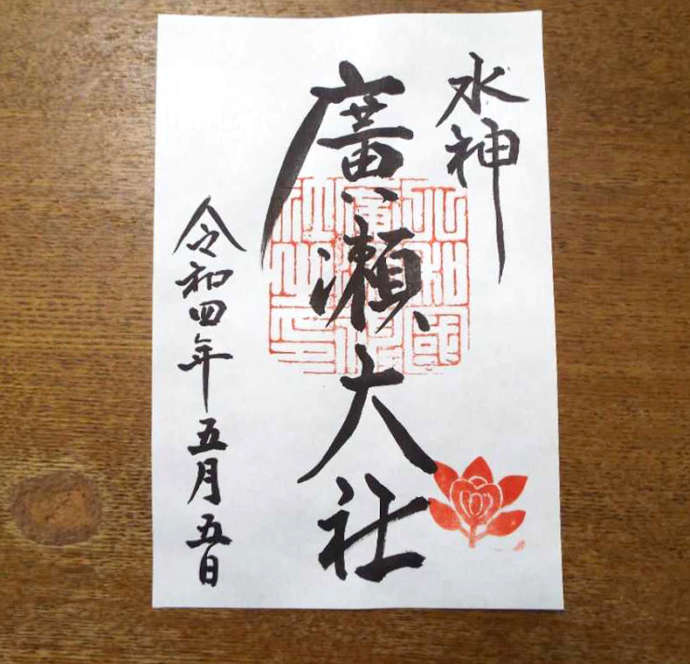 水神
廣瀬大社
令和四年五月五日